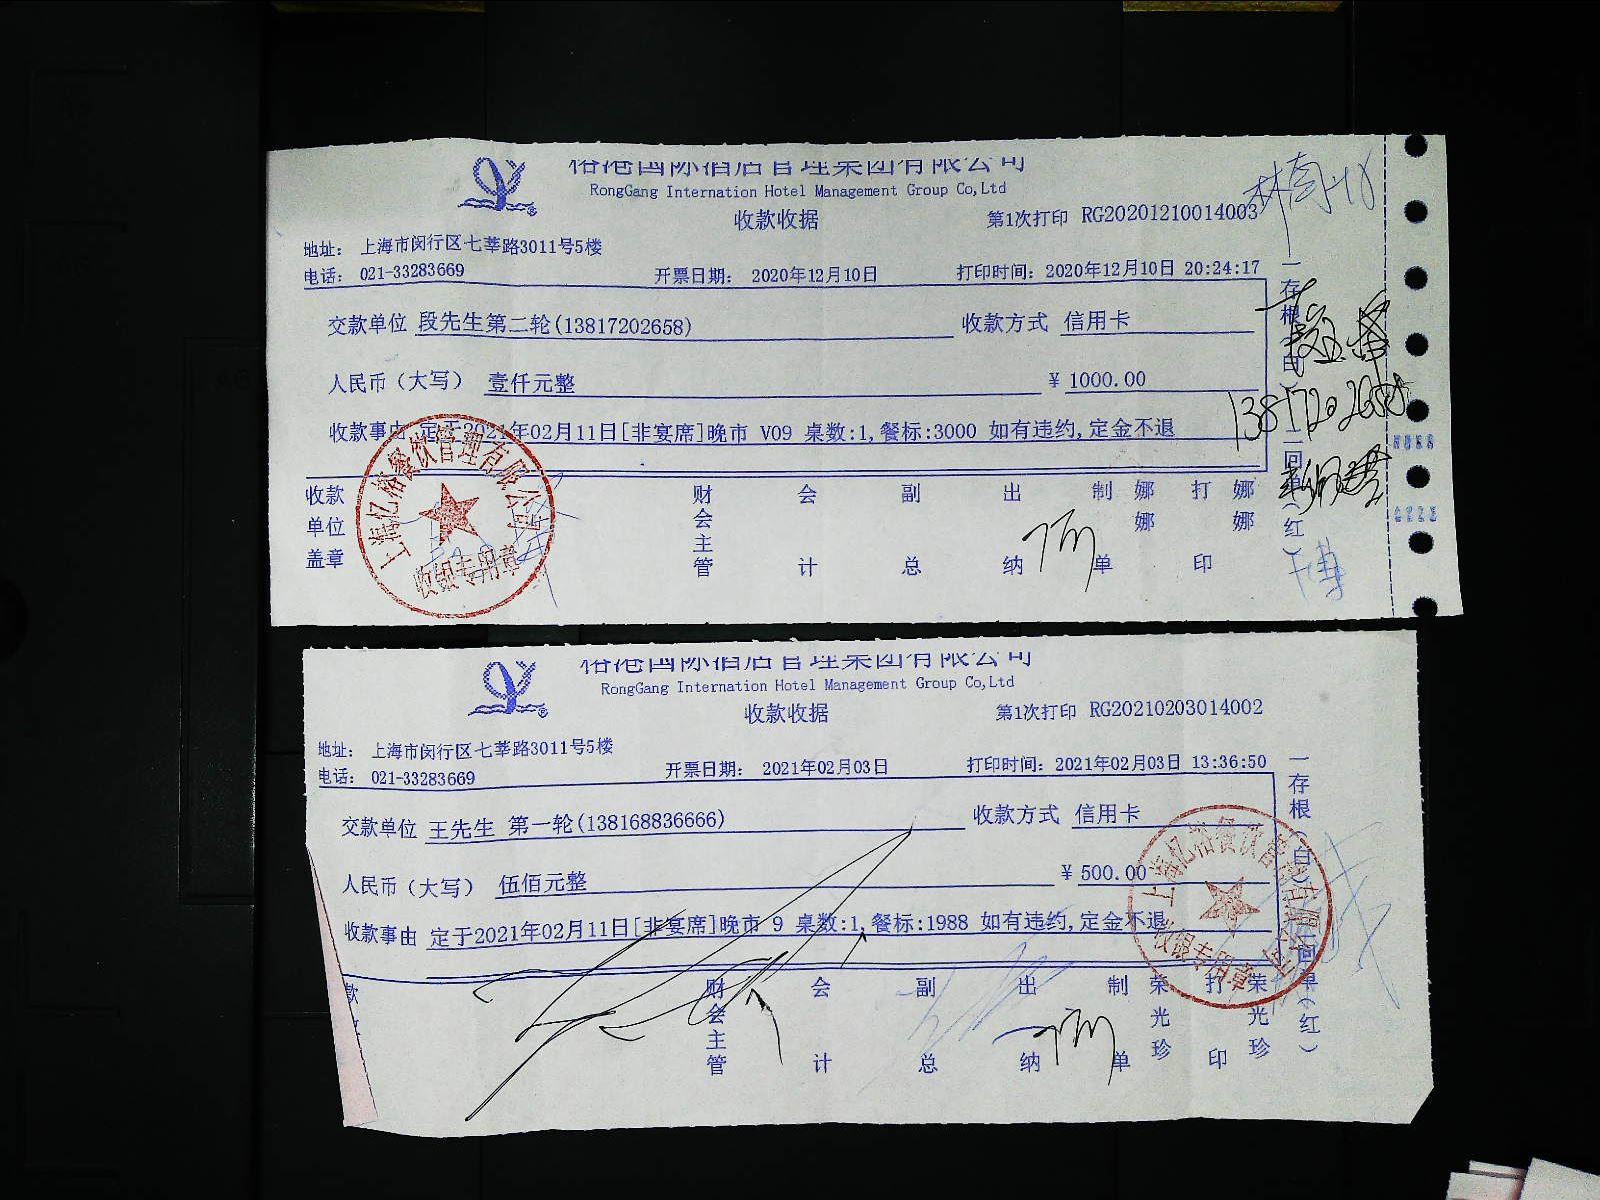 榕港国际酒店管理集团有限公司
RongGang Internation Hotel Management Group Co,Ltd
收款收据
第1次打印 RG20201210014003
地址： 上海市闵行区七莘路3011号5楼
电话： 021-33283669
开票日期： 2020年12月10日
打印时间：2020年12月10日 20:24:17
交款单位 段先生第二轮(13817202658)
收款方式 信用卡
人民币（大写） 壹仟元整
¥ 1000.00
收款事由 定于2021年02月11日[非宴席]晚市 V09 桌数:1,餐标:3000 如有违约,定金不退
收款单位盖章
财会主管
会计
副总
出纳
制单
娜娜
打印
娜娜
一存根（白）二回单（红）
13817202658
上海亿榕餐饮管理有限公司
收银专用章
榕港国际酒店管理集团有限公司
RongGang Internation Hotel Management Group Co,Ltd
收款收据
第1次打印 RG20210203014002
地址： 上海市闵行区七莘路3011号5楼
电话： 021-33283669
开票日期： 2021年02月03日
打印时间：2021年02月03日 13:36:50
交款单位 王先生 第一轮(138168836666)
收款方式 信用卡
人民币（大写） 伍佰元整
¥ 500.00
收款事由 定于2021年02月11日[非宴席]晚市 9 桌数:1,餐标:1988 如有违约,定金不退
款
财会主管
会计
副总
出纳
制单
荣光珍
打印
荣光珍
一存根（白）二回单（红）
上海亿榕餐饮管理有限公司
收银专用章